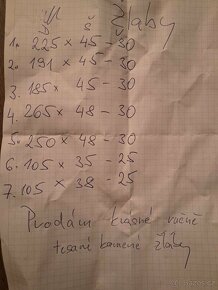 Žlaby
D Š
1. 225 x 45 - 30
2. 191 x 45 - 30
3. 185 x 45 - 30
4. 265 x 48 - 30
5. 250 x 48 - 30
6. 105 x 35 - 25
7. 105 x 38 - 25
Prodám krásné ručně
tesané kamenné žlaby